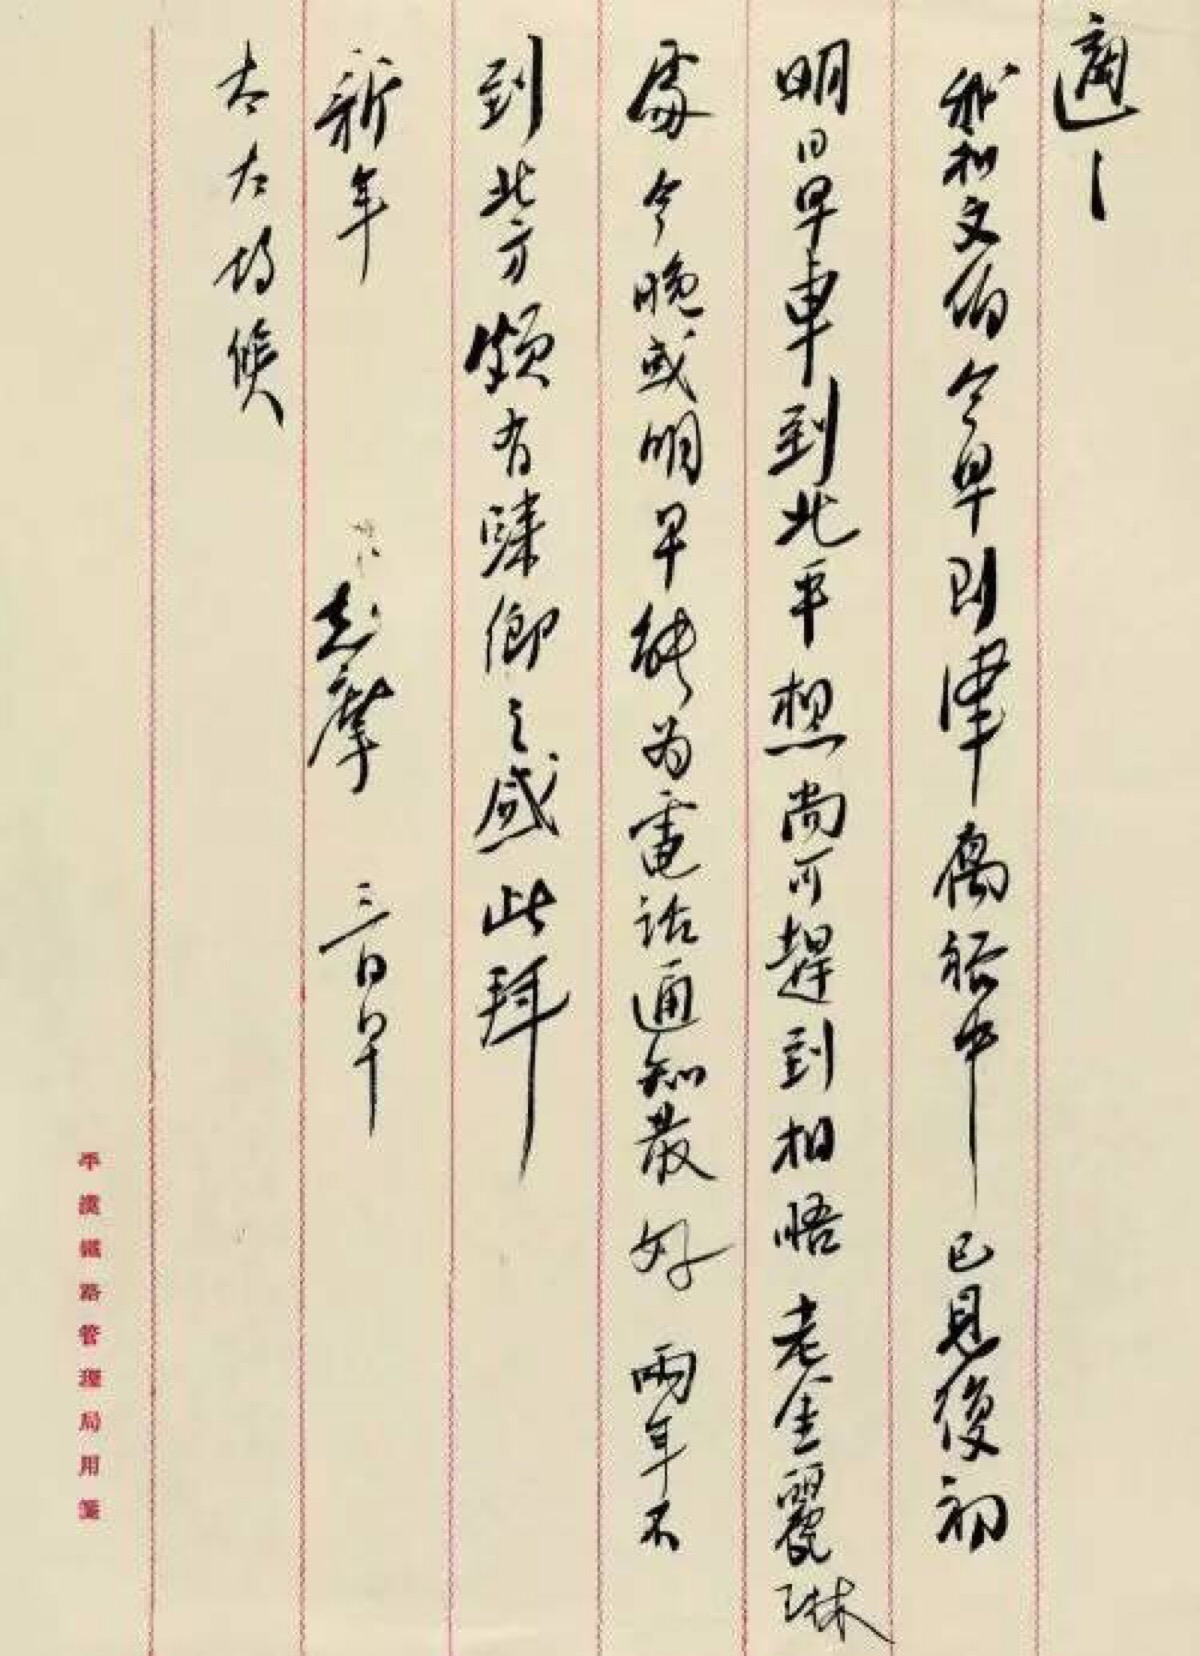 適丨
我和文伯今早到津寓裕中已見復初
明日早車到北平想尚可趕到相晤老金麗琳
處今晚或明早能为電話通知最好兩年不
到北方頗有肄鄉之感此拜
新年
志摩 三日早
太太均候
平漢鐵路管理局用箋